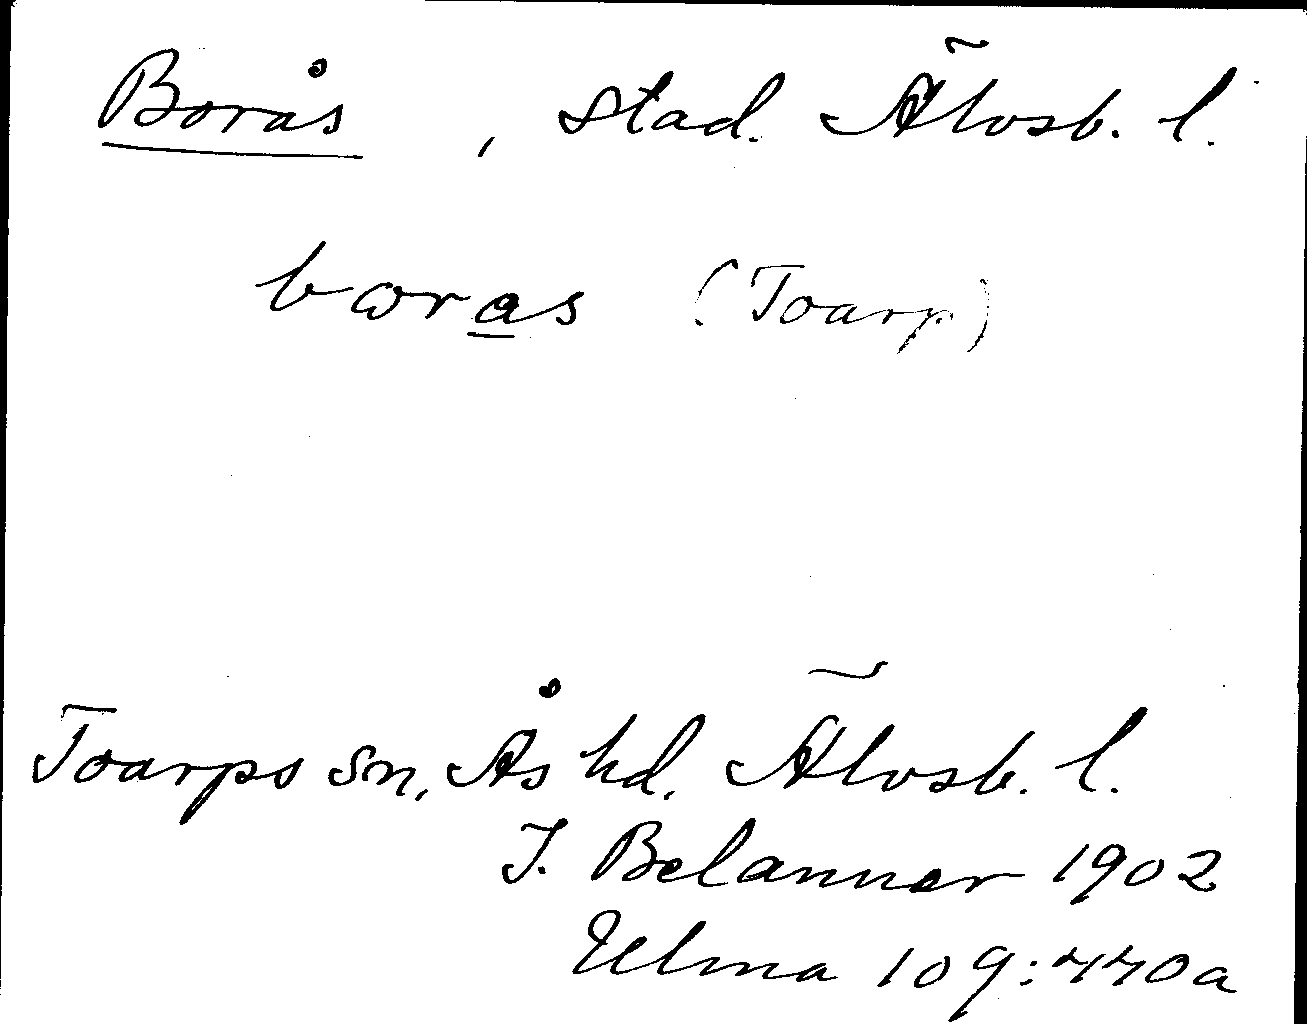 Borås, stad. Älvsb. l.
bɷras (Toarp)
Toarps sn, Ås hd, Älvsb. l.
J. Belanner 1902
Ulma 109:770a